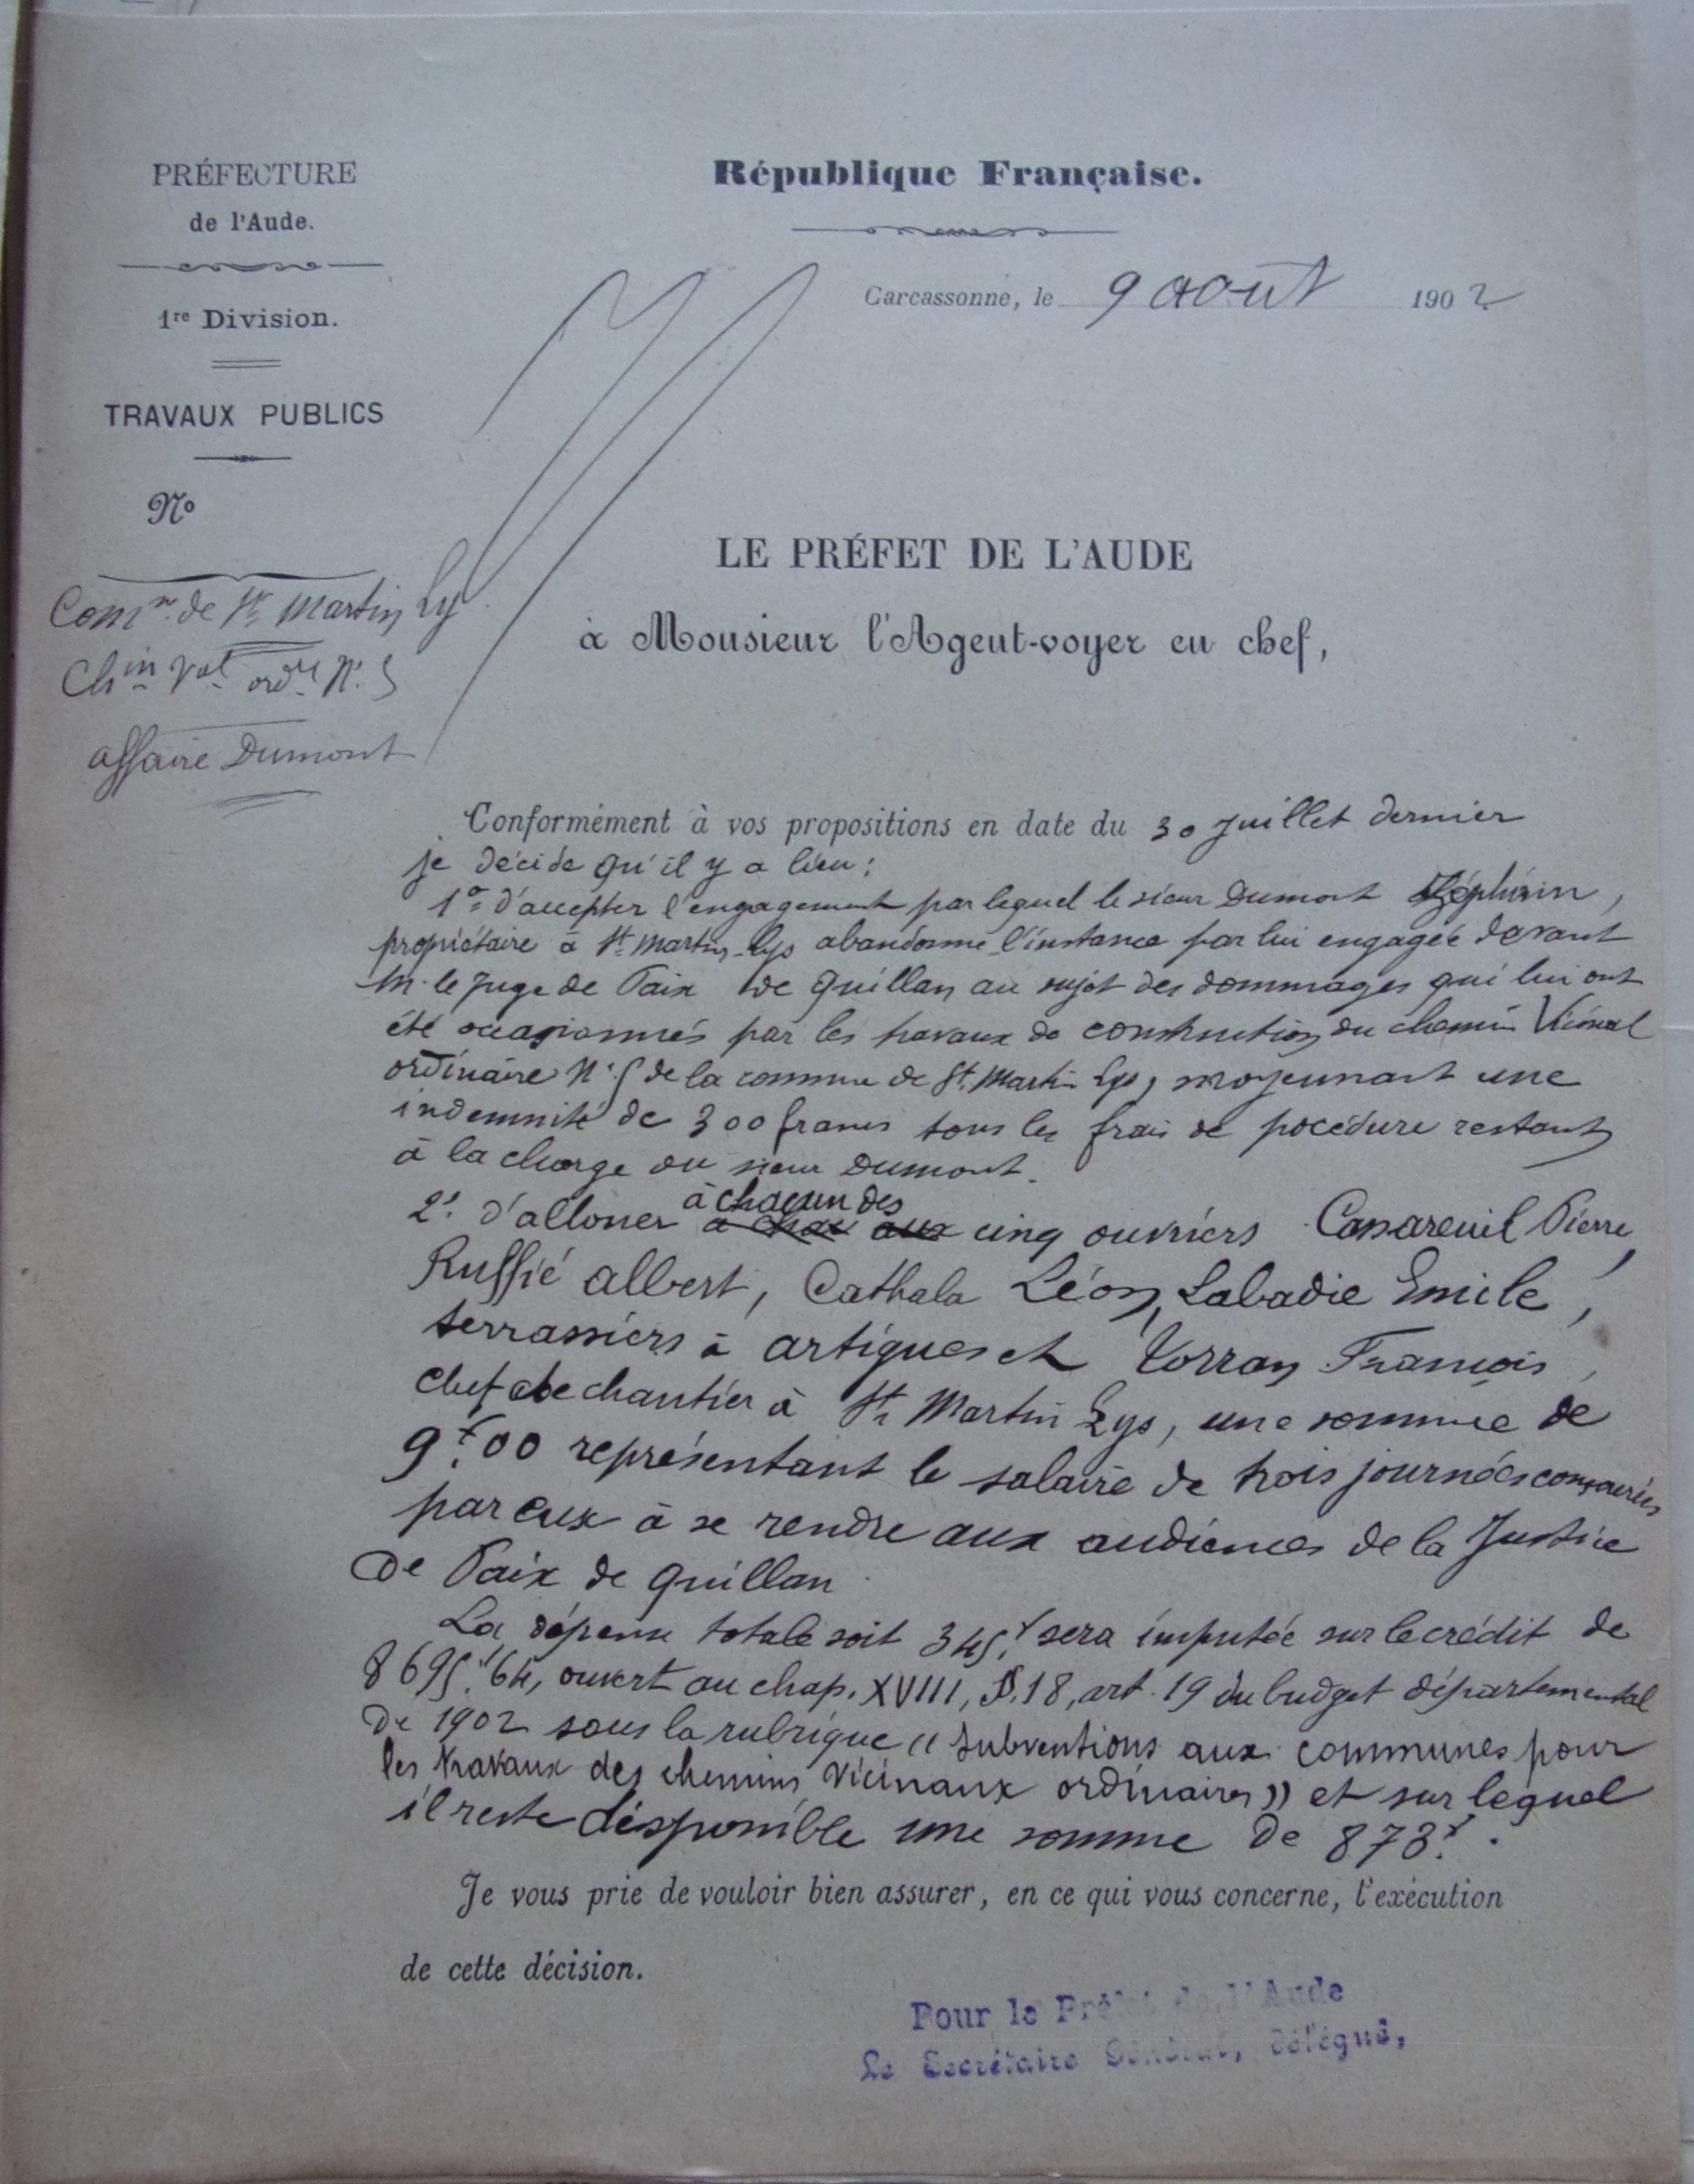 PRÉFECTURE
de l'Aude.
1re Division.
TRAVAUX PUBLICS
No
Comne de St Martin Lys
Chin val ordre N° 5
affaire Dumont
République Française.
Carcassonne, le 9 aout 1902
LE PRÉFET DE L'AUDE
à Monsieur l'Agent-voyer en chef,
Conformément à vos propositions en date du 30 juillet dernier
je décide qu'il y a lieu :
1° d'accepter l'engagement par lequel le sieur Dumont Zéphirin,
propriétaire à St Martin-Lys abandonne l'instance par lui engagée devant
M. le juge de Paix de Quillan au sujet des dommages qui lui ont
été occasionnés par les travaux de construction du chemin Vicinal
ordinaire N° 5 de la commune de St Martin Lys, moyennant une
indemnité de 300 francs tous les frais de pocédure restant
à la charge du sieur Dumont.
2° d'allouer à chacun des cinq ouvriers Canareuil Pierre,
Ruffié albert, Cathala Léon, Labadie Emile,
terrassiers à artigues et Torran François,
chef de chantier à St Martin Lys, une somme de
9f.00 représentant le salaire de trois journées
par eux à se rendre aux audiences de la Justice
De Paix de Quillan
La dépense totale soit 345f sera imputée sur le crédit de
8695f.64, ouvert au chap. XVIII, §.18, art. 19 du budget départemental
De 1902 sous la rubrique « Subventions aux communes pour
les travaux des chemins Vicinaux ordinaires » et sur lequel
il reste disponible une somme de 873f.
Je vous prie de vouloir bien assurer, en ce qui vous concerne, l'exécution
de cette décision.
Pour le Préfet de l'Aude
Le Secrétaire Général, délégué,